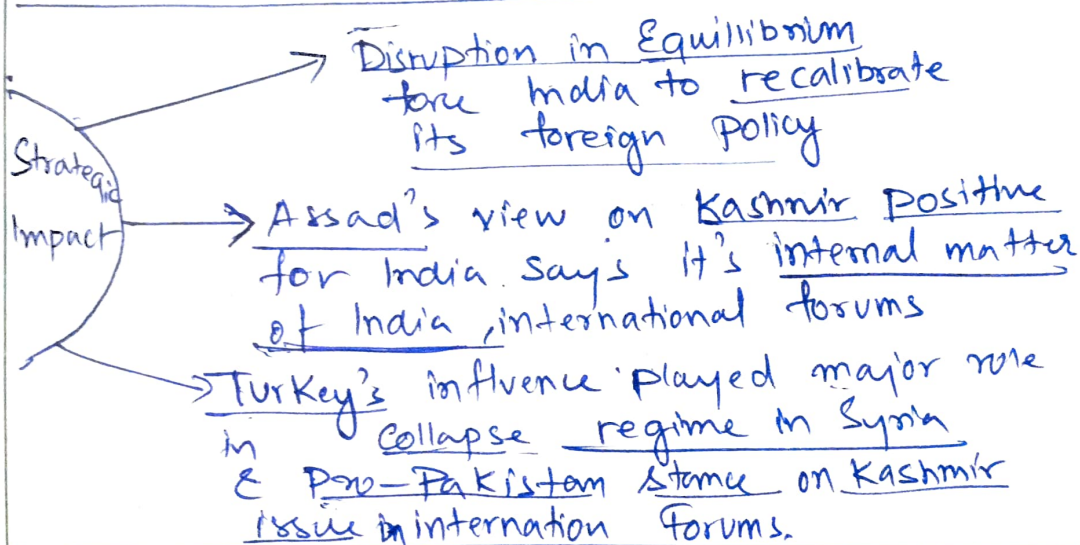 Strategic
Impact
Disruption in Equillibrium
force India to recalibrate
its foreign policy
Assad's view on Kashmir positive
for India. says it's internal matter
of India, international forums
Turkey's influence played major role
in collapse regime in Syria
& Pro-Pakistan stance on Kashmir
issue in internation forums.